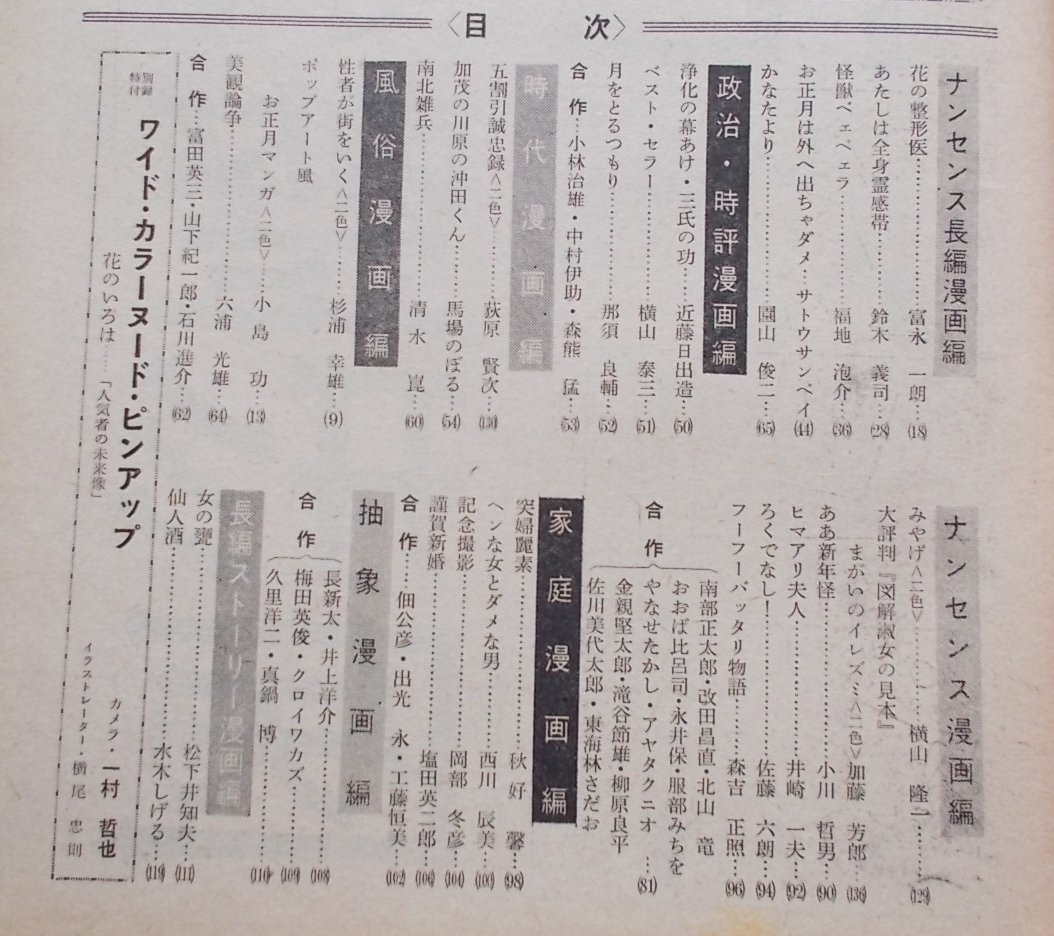 〈目次〉
ナンセンス長編漫画編
花の整形医……………富永一朗…(18)
あたしは全身霊感帯…………鈴木義司…(28)
怪獣ベェベェラ…………福地泡介…(36)
お正月は外へ出ちゃダメ・サトウサンペイ(44)
かなたより……………園山俊二…(65)
政治・時評漫画編
浄化の幕あけ・三氏の功…近藤日出造…(50)
ベスト・セラー…………横山泰三…(51)
月をとるつもり…………那須良輔…(52)
合作…小林治雄・中村伊助・森熊猛…(53)
時代漫画編
五割引誠忠録〈二色〉……荻原賢次…(130)
加茂の川原の沖田くん……馬場のぼる…(54)
南北雑兵……………清水崑…(60)
風俗漫画編
性者が街をいく〈二色〉……杉浦幸雄…(9)
ポップアート風
お正月マンガ〈二色〉…小島功…(13)
美観論争……………六浦光雄…(64)
合作…富田英三・山下紀一郎・石川進介…(62)
特別付録
ワイド・カラーヌード・ピンアップ
花のいろは……「人気者の未来像」
カメラ・一村哲也
イラストレーター・横尾忠則
ナンセンス漫画編
みやげ〈二色〉…………横山隆一…(129)
大評判『図解淑女の見本』
まがいのイレズミ〈二色〉加藤芳郎…(136)
ああ新年怪……………小川哲男…(90)
ヒマアリ夫人……………井崎一夫…(92)
ろくでなし!……………佐藤六朗…(94)
フーフーバッタリ物語………森吉正照…(96)
合作
南部正太郎・改田昌直・北山竜
おおば比呂司・永井保・服部みちを
やなせたかし・アヤタクニオ…(81)
金親堅太郎・滝谷節雄・柳原良平
佐川美代太郎・東海林さだお
家庭漫画編
突婦麗素……………秋好馨…(98)
ヘンな女とダメな男………西川辰美…(100)
記念撮影……………岡部冬彦…(104)
謹賀新婚……………塩田英二郎…(106)
合作……佃公彦・出光永・工藤恒美…(102)
抽象漫画編
合作
長新太・井上洋介……………(108)
梅田英俊・クロイワカズ………(109)
久里洋二・真鍋博……………(110)
長編ストーリー漫画編
女の甕……………松下井知夫…(111)
仙人酒……………水木しげる…(119)